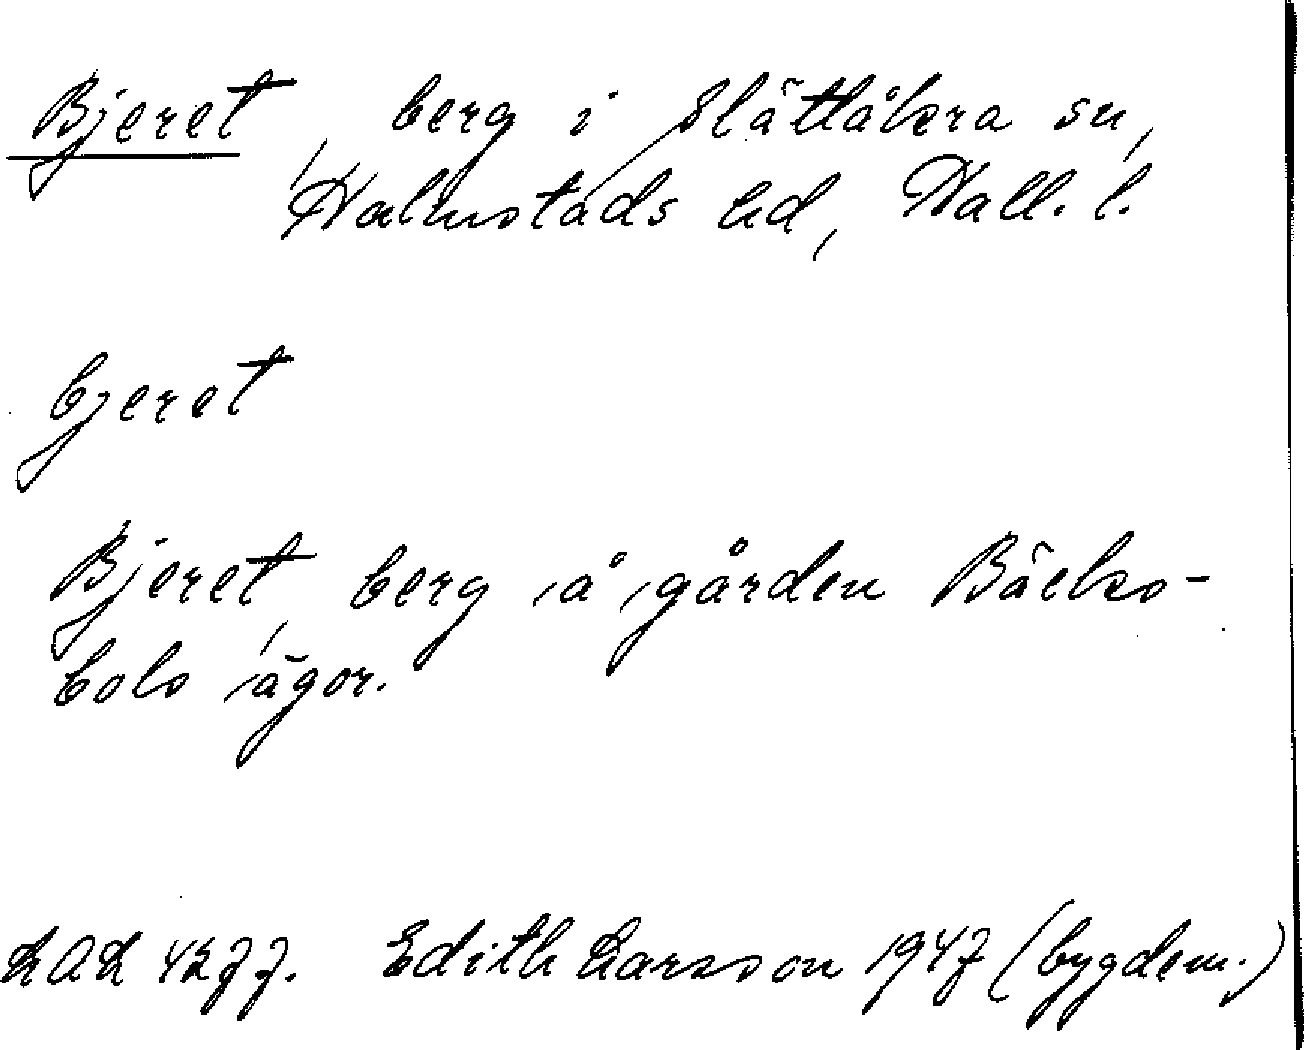 Bjeret, berg i Slättåkra sn,
Halmstads hd, Hall. l.
bjeret
Bjeret, berg å gården Bäcks-
bols ägor.
LAL 4277. Edith Larsson 1947 (bygdem.)